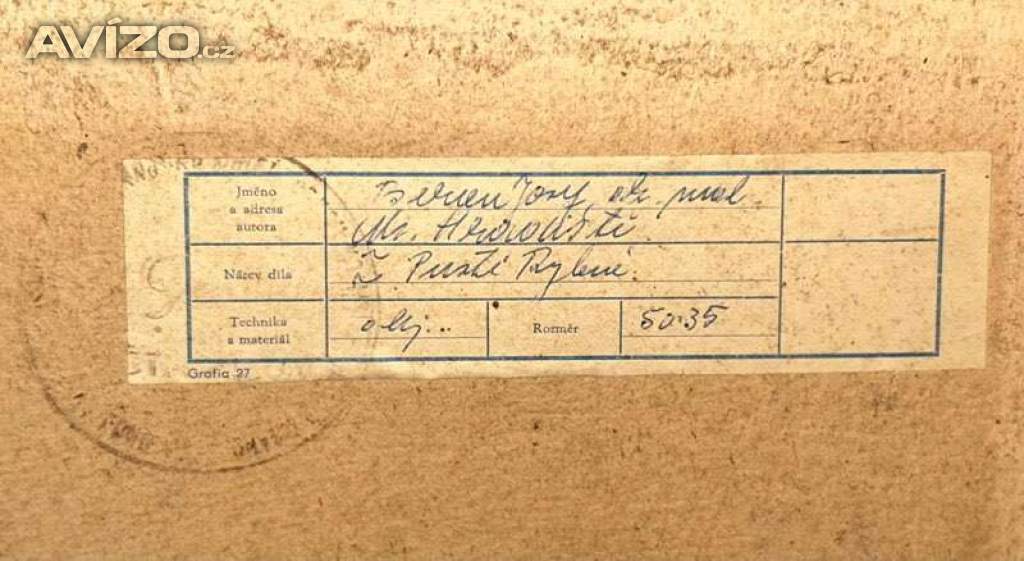 AVÍZO.cz
Jméno
a adresa
autora
Josef, ak. mal.
Mn. Hradiště
Název díla
Z Pusté Rybné.
Technika
a materiál
olej..
Rozměr
50:35
Grafia 27